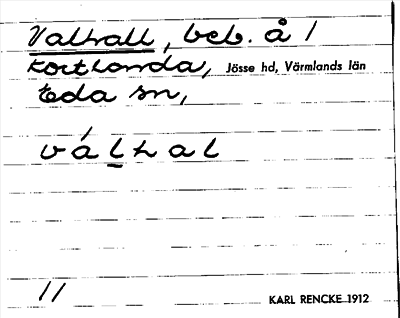 Valhall, beb. å 1
Köla, Jösse hd, Värmlands län
Eda sn,
válhal
11
KARL RENCKE 1912